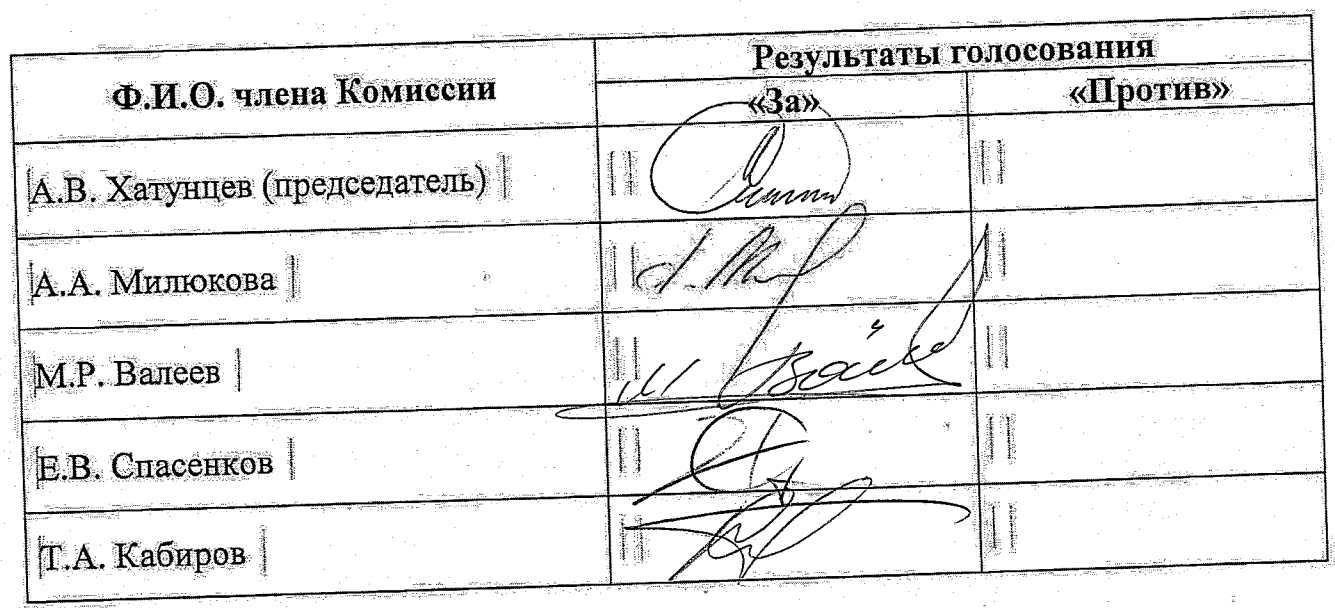 Ф.И.О. члена Комиссии
Результаты голосования
«За»
«Против»
А.В. Хатунцев (председатель)
А.А. Милюкова
М.Р. Валеев
Е.В. Спасенков
Т.А. Кабиров